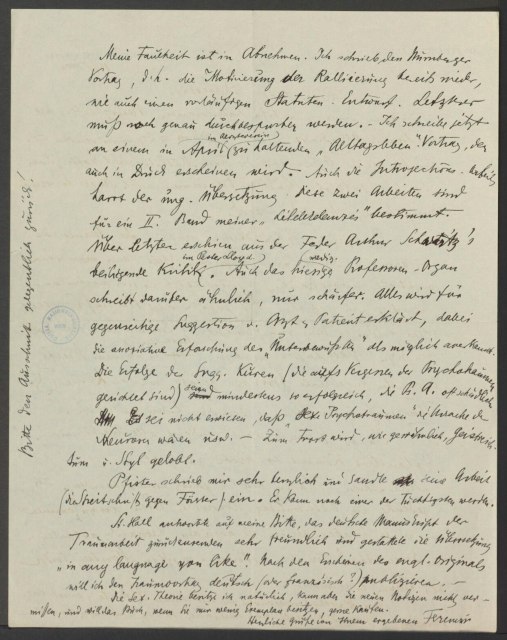 Meine Faulheit ist in Abnehmen. Ich schrieb den Nürnberger
Vortrag, d.h. die Motivierung der Rallierung bereits nieder,
wie auch einen vorläufigen Statuten-Entwurf. Letzterer
muß noch genau durchbesprochen werden. - Ich schreibe jetzt
an einem in April (im Ärzteverein) zu haltenden „Alltagsleben" Vortrag, der
auch in Druck erscheinen wird. Auch die Introjections-Arbeit
harrt der ung. Übersetzung. Diese zwei Arbeiten sind
für ein II. Band meiner „Lélekelemzés" bestimmt.
Über Letzten erschien aus der Feder Arthur 's
(im Pester Lloyd) beiliegende Kritik. Auch das hiesige mediz. Professoren-Organ
schreibt darüber ähnlich, nur schärfer. Alles wird für
gegenseitige Suggestion v. Arzt u Patient erklärt, dabei
die Erforschung des „Unterbewußten" als möglich anerkannt.
Die Erfolge der Sugg. Kuren (die aufs Vergessen der Psychotraumen
gerichtet sind) seien mindestens so erfolgreich, die Ps. A. oft schädlich.
Es sei nicht erwiesen, daß „sex. Psychotraumen" die Ursache der
Neurosen wären usw. - Zum Trost wird, wie gewöhnlich, Geistreich-
tum u. Styl gelobt.
Pfister schrieb mir sehr herzlich und sandte seine Arbeit
(die Streitschrift gegen Förster) ein. Er kann noch einer der Tüchtigsten werden.
St. Hall antwortete auf meine Bitte, das deutsche Manuskript der
Traumarbeit zurückzusenden sehr freundlich und gestattete die Übersetzung
„in any language you like". Nach dem Erscheinen des engl. Originals
will ich den Traumvortrag deutsch (oder französisch?) publizieren. -
Die Sex. Theorie besitze ich natürlich, kann aber die neuen Notizen nicht ver-
missen, und will das Buch, wenn Sie nur wenig Exemplare besitzen, gerne kaufen.
Herzliche Grüße von Ihrem ergebenen Ferenczi
Bitte den Ausschnitt gelegentlich zurück!